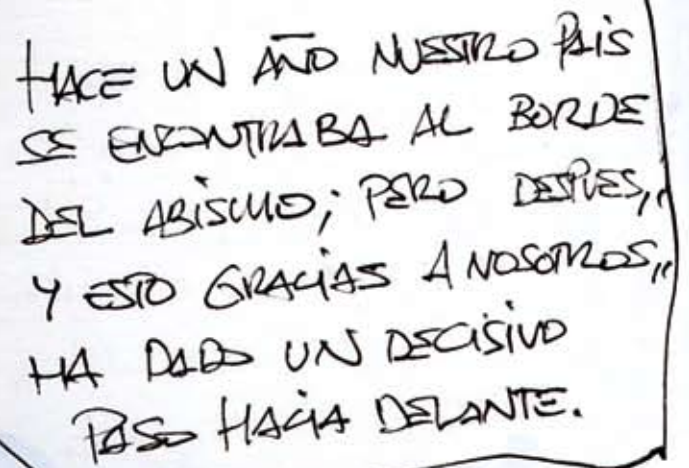 HACE UN AÑO NUESTRO PAIS
SE ENCONTRABA AL BORDE
DEL ABISMO; PERO DESPUES,,
Y ESTO GRACIAS A NOSOTROS,,
HA DADO UN DECISIVO
PASO HACIA DELANTE.